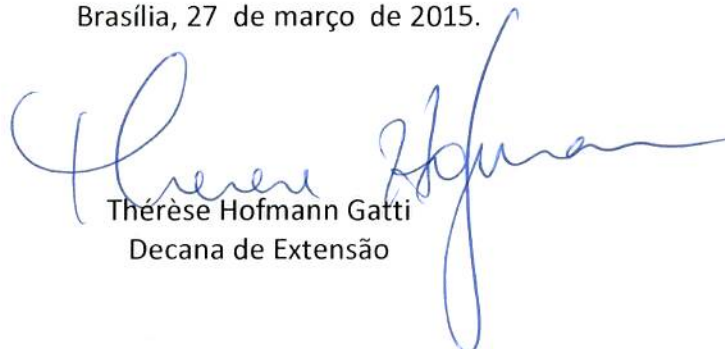 Brasília, 27 de março de 2015.
Therese Hofmann
Thérèse Hofmann Gatti
Decana de Extensão